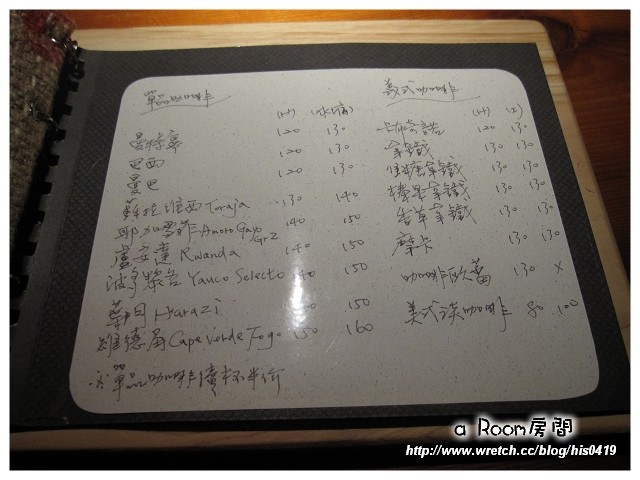 單品咖啡
(H) (冰滴)
曼特寧 120 130
巴西 120 130
曼巴 120 130
蘇拉維西 Toraja 130 140
耶加雪菲 Amoro Gayo Gr2 140 150
盧安達 Rwanda 140 150
波多黎各 Yauco Selecto 140 150
葉門 Harazi 150
維德角 Cape Verde Fogo 150 160
※單品咖啡續杯半價
義式咖啡
(H) (I)
卡布奇諾 120 130
拿鐵 130 130
焦糖拿鐵 130 130
榛果拿鐵 130 130
香草拿鐵 130 130
摩卡 130 130
咖啡歐蕾 130 ×
美式淡咖啡 80 100
a Room房間
http://www.wretch.cc/blog/his0419